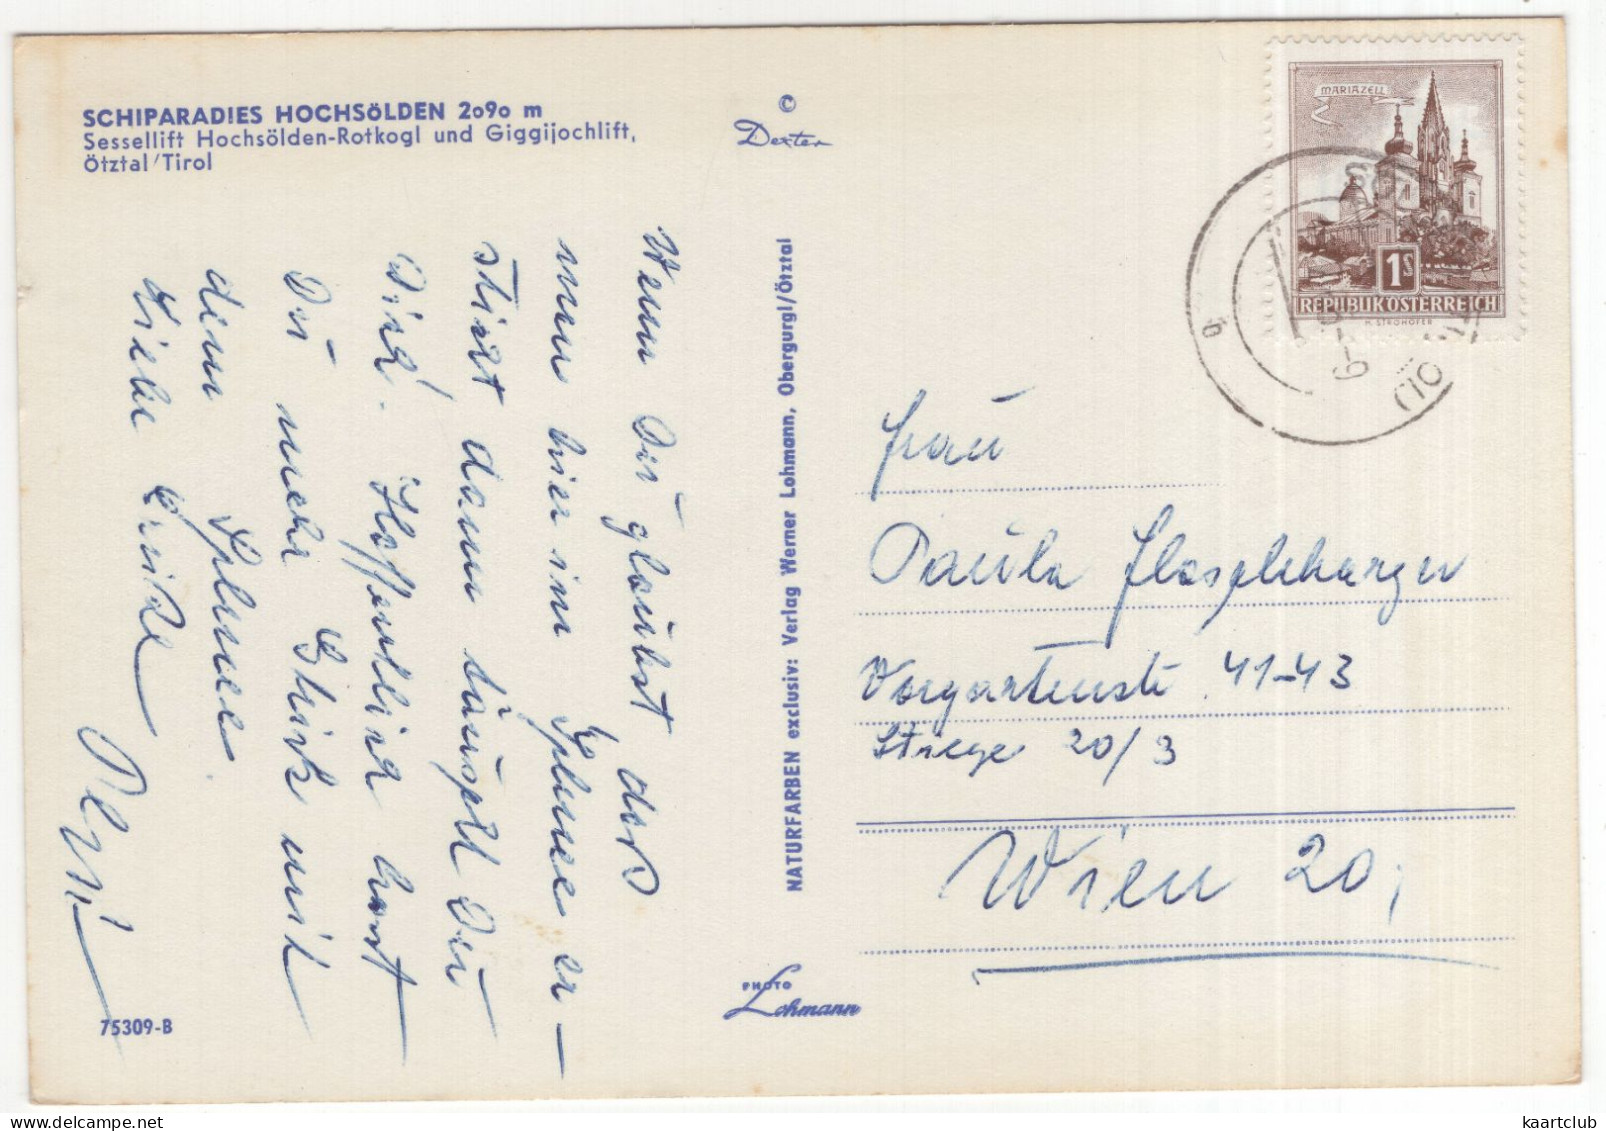 SCHIPARADIES HOCHSÖLDEN 2090 m
Sessellift Hochsölden-Rotkogl und Giggijochlift,
Ötztal/Tirol
©
Dexter
MARIAZELL
1S
REPUBLIK ÖSTERREICH
H. STROHOFER
b
Wenn Du glaubst daß
nun hier im Schnee er-
stirzt dann täuscht Du
Dich. Hoffentlich hast
Du mehr Glück mit
dem Schnee.
Liebe Grüße
NATURFARBEN exclusiv: Verlag Werner Lohmann, Obergurgl/Ötztal
Frau
Paula
Vorgartenstr. 41-43
Stiege 20/3
Wien 20,
PHOTO
Lohmann
75309-B
kaartclub